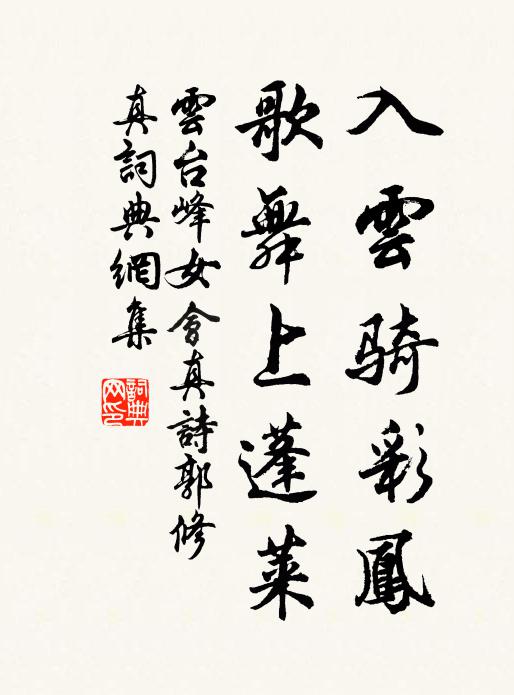 入雲騎彩鳳
歌舞上蓬萊
雲台峰女會真詩郭修
真詞典網集
詞典網印